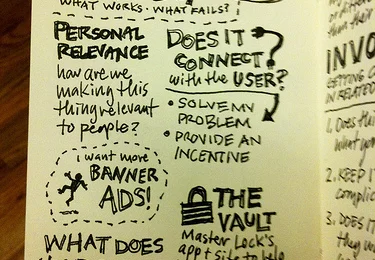 WHAT WORKS · WHAT FAILS?
PERSONAL
RELEVANCE
how are we
making this
thing relevant
to people?
i want more
BANNER
ADS!
WHAT DOES
DOES IT
CONNECT
with the USER?
• SOLVE MY
PROBLEM
• PROVIDE AN
INCENTIVE
THE
VAULT
Master Lock's
app + site to help
INVO
GETTING C
IN RELATED
1. Does thi
what yo
2. KEEP IT
complic
3. DOES IT
they w